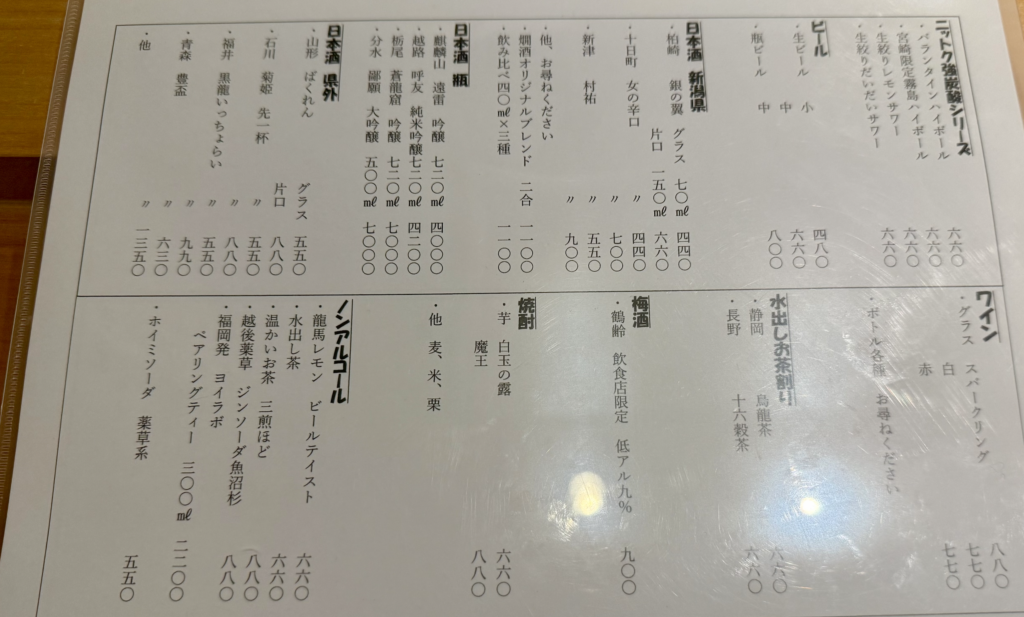 ニットク強炭酸シリーズ
・バランタインハイボール 六六〇
・宮崎限定霧島ハイボール 六六〇
・生絞りレモンサワー 六六〇
・生絞りだいだいサワー 六六〇
ビール
・生ビール 小 四八〇
中 六六〇
・瓶ビール 中 八〇〇
日本酒 新潟県
・柏崎 銀の翼 グラス 七〇㎖ 四四〇
片口 一五〇㎖ 六六〇
・十日町 女の辛口 〃 四四〇
〃 七〇〇
・新津 村祐 〃 五五〇
〃 九〇〇
・他、お尋ねください
・燗酒オリジナルブレンド 二合 一一〇〇
・飲み比べ四〇㎖×三種 一一〇〇
日本酒 瓶
・麒麟山 遠雷 吟醸 七二〇㎖ 四〇〇〇
・越路 呼友 純米吟醸 七二〇㎖ 四二〇〇
・栃尾 蒼龍窟 吟醸 七二〇㎖ 七〇〇〇
・分水 鄙願 大吟醸 五〇〇㎖ 七〇〇〇
日本酒 県外
・山形 ばくれん グラス 五五〇
片口 八八〇
・石川 菊姫 先一杯 〃 五五〇
〃 八八〇
・福井 黒龍いっちょらい 〃 五五〇
〃 九九〇
・青森 豊盃 〃 六三〇
・他 〃 一三五〇
ワイン
・グラス スパークリング 八八〇
白 七七〇
赤 七七〇
・ボトル各種 お尋ねください
水出しお茶割り
・静岡 烏龍茶 六六〇
・長野 十六穀茶 六六〇
梅酒
・鶴齢 飲食店限定 低アル九% 九〇〇
焼酎
・芋 白玉の露 六六〇
魔王 八八〇
・他 麦、米、栗
ノンアルコール
・龍馬レモン ビールテイスト 六六〇
・水出し茶 六六〇
・温かいお茶 三煎ほど 八八〇
・越後薬草 ジンソーダ魚沼杉 八八〇
・福岡発 ヨイラボ
ペアリングティー 三〇〇㎖ 二二〇〇
・ホイミソーダ 薬草系 五五〇